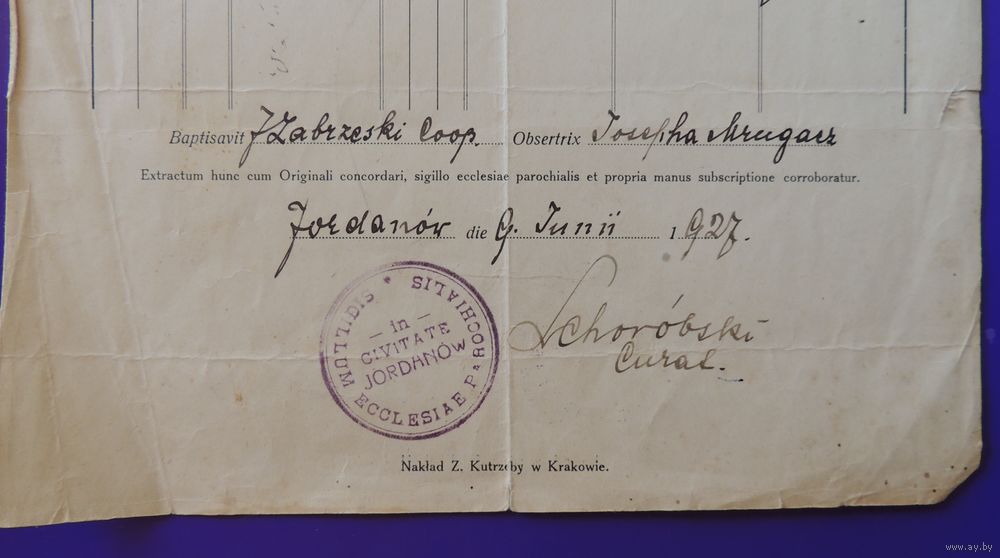 Baptisavit J Zabrzeski Coop. Obsertrix Josepha Mrugacz
Extractum hunc cum Originali concordari, sigillo ecclesiae parochialis et propria manus subscriptione corroboratur.
Jordanów die 9. Junii 1927.
SIGILLUM ECCLESIAE PAROCHIALIS
– in –
CIVITATE
JORDANÓW
Schoróbski
Curat.
Nakład Z. Kutrzeby w Krakowie.
www.ay.by